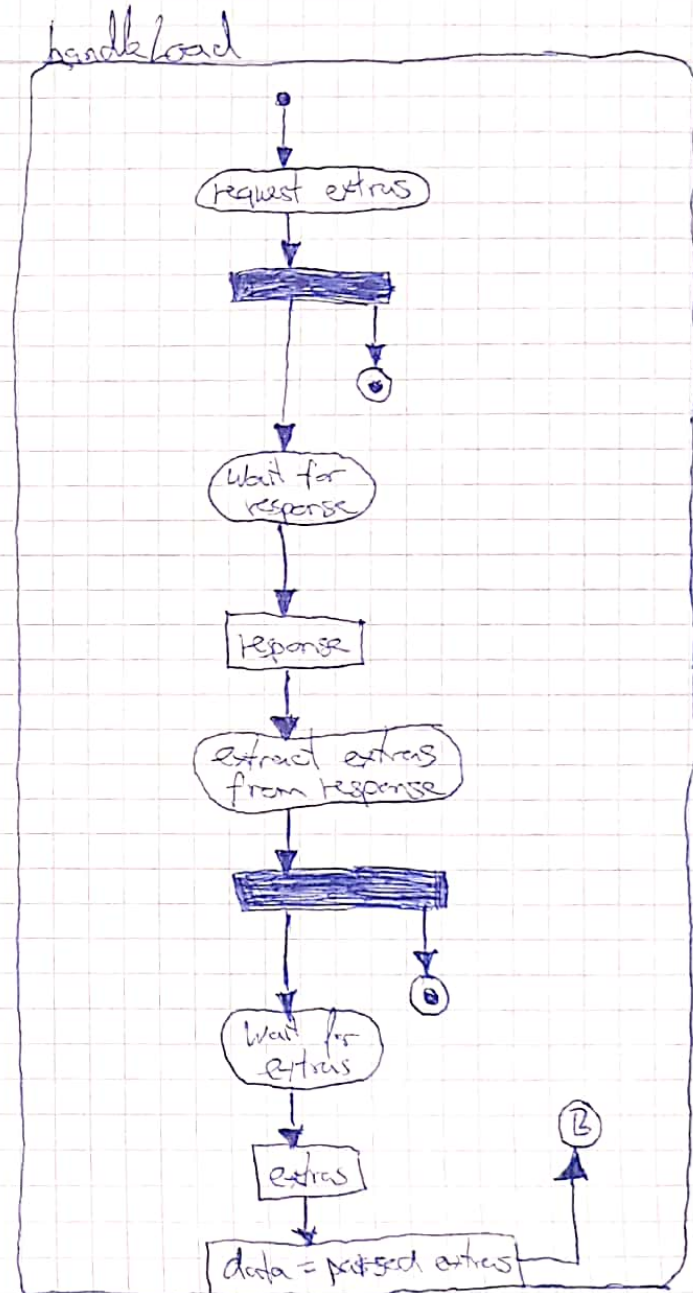 handleLoad
request extras
Wait for
response
reponse
extract extras
from response
Wait for
extras
extras
B
data = parsed extras